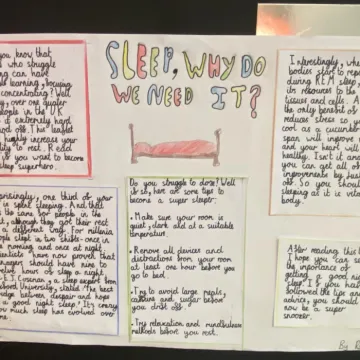 SLEEP, WHY DO
WE NEED IT?
you know that
who struggle
can have
learning, focusing
concentrating? Well
over one quarter
people in the UK
it extremely hard
nod off. This leaflet
highly increase your
ability to rest. Read
if you want to become
sleep superhero.
Interestingly, whe
bodies start to repa
during REM sleep,
its resources to the
tissues and cells. A
the only benefit of
reduces stress so y
cool as a cucumber
span will improve
and your heart will
healthy. Isn't it
you can get all of
improvements by just
off. So you should
sleeping as it is vital
body.
prisingly, one third of your
is spent sleeping. And that
is the same for people in the
although they got their rest
a different way. For millenia
people slept in two shifts- once in
morning and once at night.
have now proven that
teenagers should have nine to
hours of sleep a night.
a sleep expert from
University, stated 'The best
bridge between despair and hope
a good night sleep'. It's crazy
how much sleep has evolved over
time.
Do you struggle to doze? Well
if so, here are some tips to
become a super sleeper:
• Make sure your room is
quiet, dark and at a suitable
temperature.
• Remove all devices and
distractions from your room
at least one hour before you
go to bed.
• Try to avoid large meals,
caffeine and sugar before
you drift off.
• Try relaxation and mindfulness
methods before you rest.
After reading this
I hope you can
the importance of
getting a good nig
sleep. If you have
followed the tips an
advice, you should
now be a super
snoozer.
By